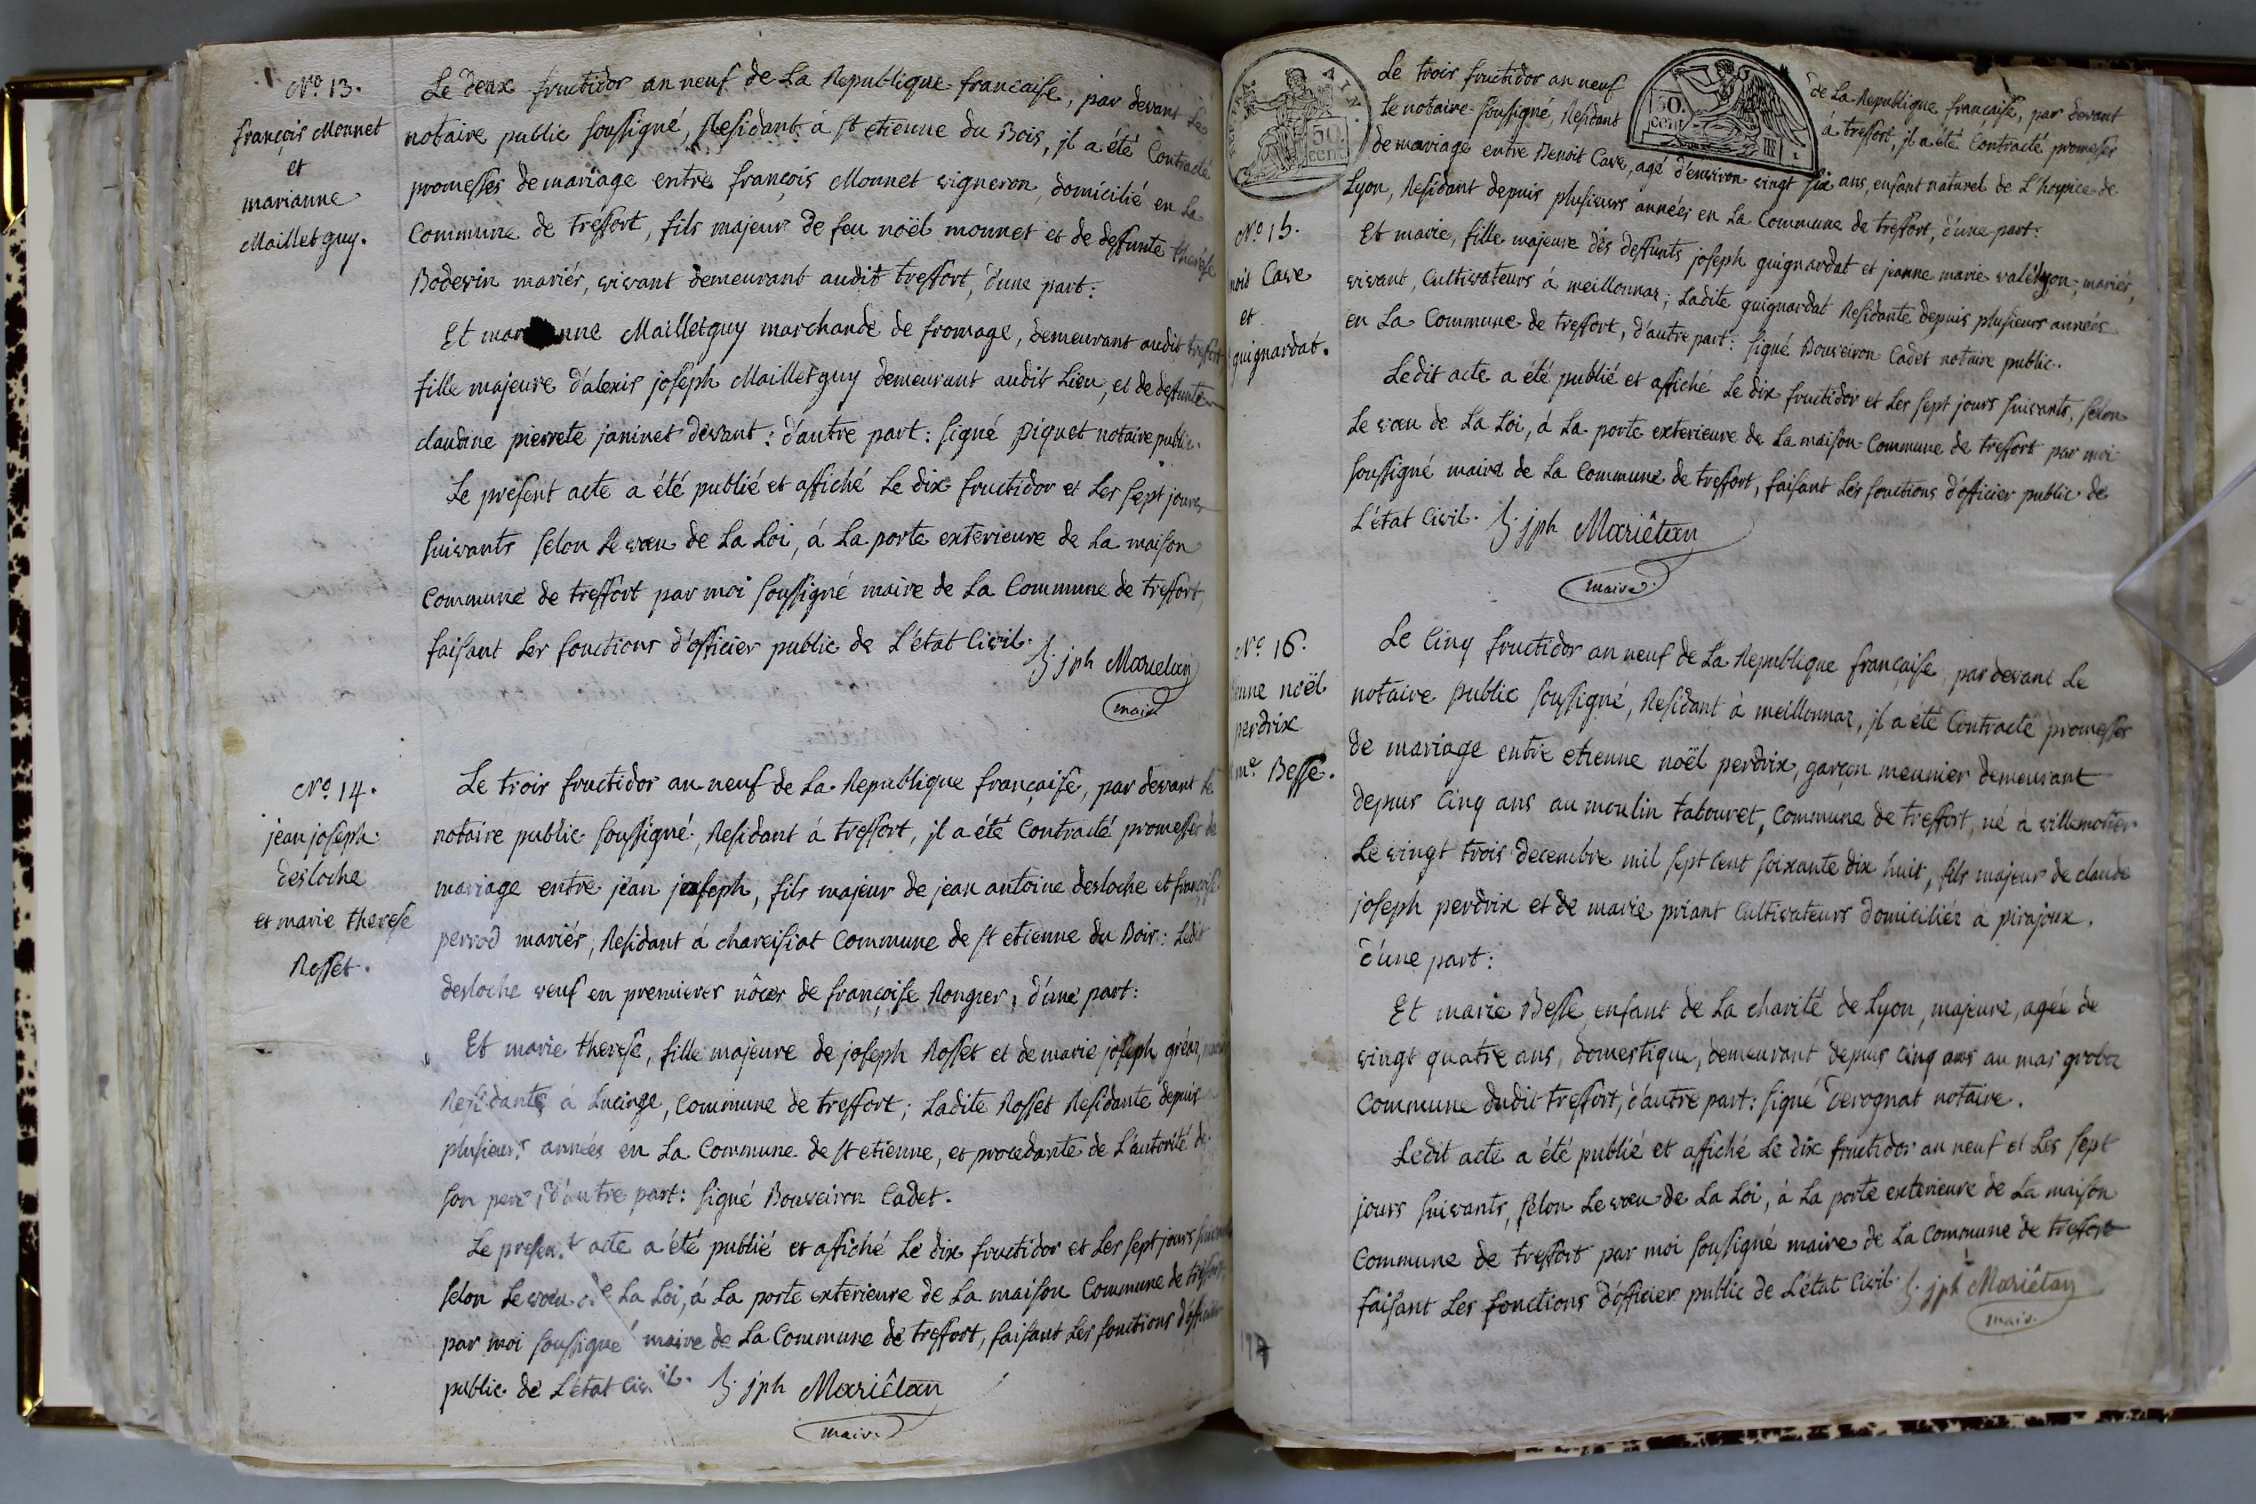 No. 13.
françois Monnet
et
marianne
Maillet guy.
Le deux fructidor an neuf de La Republique francaise, par devant Le
notaire public soussigné, Residant à st etienne du Bois, il a été Contracté
promesses de mariage entre françois Monnet vigneron, domicilié en La
Commune de treffort, fils majeur de feu noël monnet et de deffunte therese
Boderin mariés, vivant demeurant audit treffort, d'une part:
Et mar anne Maillet guy marchande de fromage, demeurant audit treffort
fille majeure d'alexis joseph Maillet guy demeurant audit Lieu, et de deffunte
claudine pierrete janinet devant: d'autre part: signé piquet notaire public.
Le present acte a été publié et affiché Le dix fructidor et Les sept jours
suivants selon Le vœu de La Loi, à La porte exterieure de La maison
Commune de treffort par moi soussigné maire de La Commune de treffort,
faisant Les fonctions d'officier public de L'état Civil. jph Marietan
maire
No. 14.
jean joseph
desloche
et marie therese
Rosset.
Le trois fructidor an neuf de La Republique française, par devant Le
notaire public soussigné, Residant à treffort, il a été Contracté promesses de
mariage entre jean joseph, fils majeur de jean antoine desloche et françoise
perrod mariés, Residant à charcisiat Commune de st etienne du Bois: Ledit
desloche veuf en premieres nôces de françoise Rongier, d'une part:
Et marie therese, fille majeure de joseph Rosset et de marie joseph gréaz,
Residante à Lucinge, Commune de treffort; Ladite Rosset Residante depuis
plusieurs années en La Commune de st etienne, et procedante de L'autorité de
son pere, d'autre part: signé Bouveiron Cadet.
Le present acte a été publié et affiché Le dix fructidor et Les sept jours suivants
selon Le vœu de La Loi, à La porte exterieure de La maison Commune de treffort,
par moi soussigné maire de La Commune de treffort, faisant Les fonctions d'officier
public de L'état Civil. jph Mariêtan
maire
50.
cent
50.
cent
Le trois fructidor an neuf de La Republique française, par devant
Le notaire soussigné, Residant à treffort, il a été Contracté promesses
de mariage entre Benoit Cave, agé d'environ vingt six ans, enfant naturel de L'hospice de
Lyon, Residant depuis plusieurs années en La Commune de treffort, d'une part:
Et marie, fille majeure des deffunts joseph guignardat et jeanne marie valetyon, mariés,
vivant, Cultivateurs à meillonnas; Ladite guignardat Residante depuis plusieurs années
en La Commune de treffort, d'autre part: signé Bouveiron Cadet notaire public.
Ledit acte a été publié et affiché Le dix fructidor et Les sept jours suivants, selon
Le vœu de La Loi, à La porte exterieure de La maison Commune de treffort par moi
soussigné maire de La Commune de treffort, faisant Les fonctions d'officier public de
L'état Civil. jph Mariêtan
maire
No. 15.
noit Cave
et
guignardat.
No. 16.
ienne noël
perdrix
me. Besse.
Le Cinq fructidor an neuf de La Republique française, par devant Le
notaire public soussigné, Residant à meillonnaz, il a été Contracté promesses
de mariage entre etienne noël perdrix, garçon meunier demeurant
depuis Cinq ans au moulin tabouret, Commune de treffort, né à villemotier
Le vingt trois decembre mil sept Cent soixante dix huit, fils majeur de claude
joseph perdrix et de marie priant Cultivateurs domiciliés à pirajoux.
d'une part:
Et marie Besse enfant de La charité de Lyon, majeure, agée de
vingt quatre ans, domestique, demeurant depuis Cinq ans au mas groboz
Commune dudit treffort, d'autre part: signé Verognat notaire.
Ledit acte a été publié et affiché Le dix fructidor an neuf et Les sept
jours suivants, selon Le vœu de La Loi, à La porte exterieure de La maison
Commune de treffort par moi soussigné maire de La Commune de treffort
faisant Les fonctions d'officier public de L'état Civil. jph Mariêtan
maire